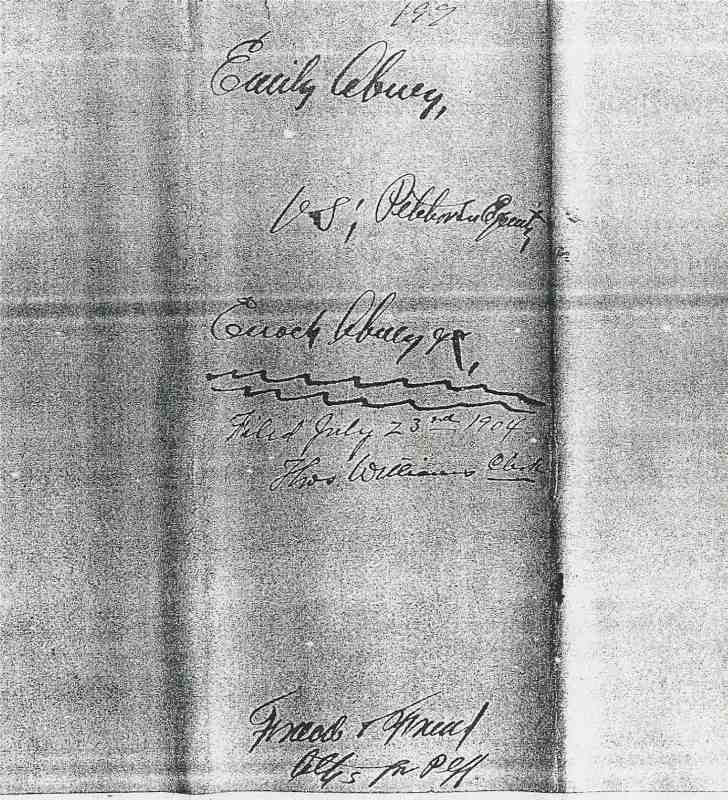 199
Emily Abney,
vs; Petition in Equity,
Enoch Abney &c,
Filed July 23rd 1904
Thos Williams Clerk
& 
Attys for Plff.